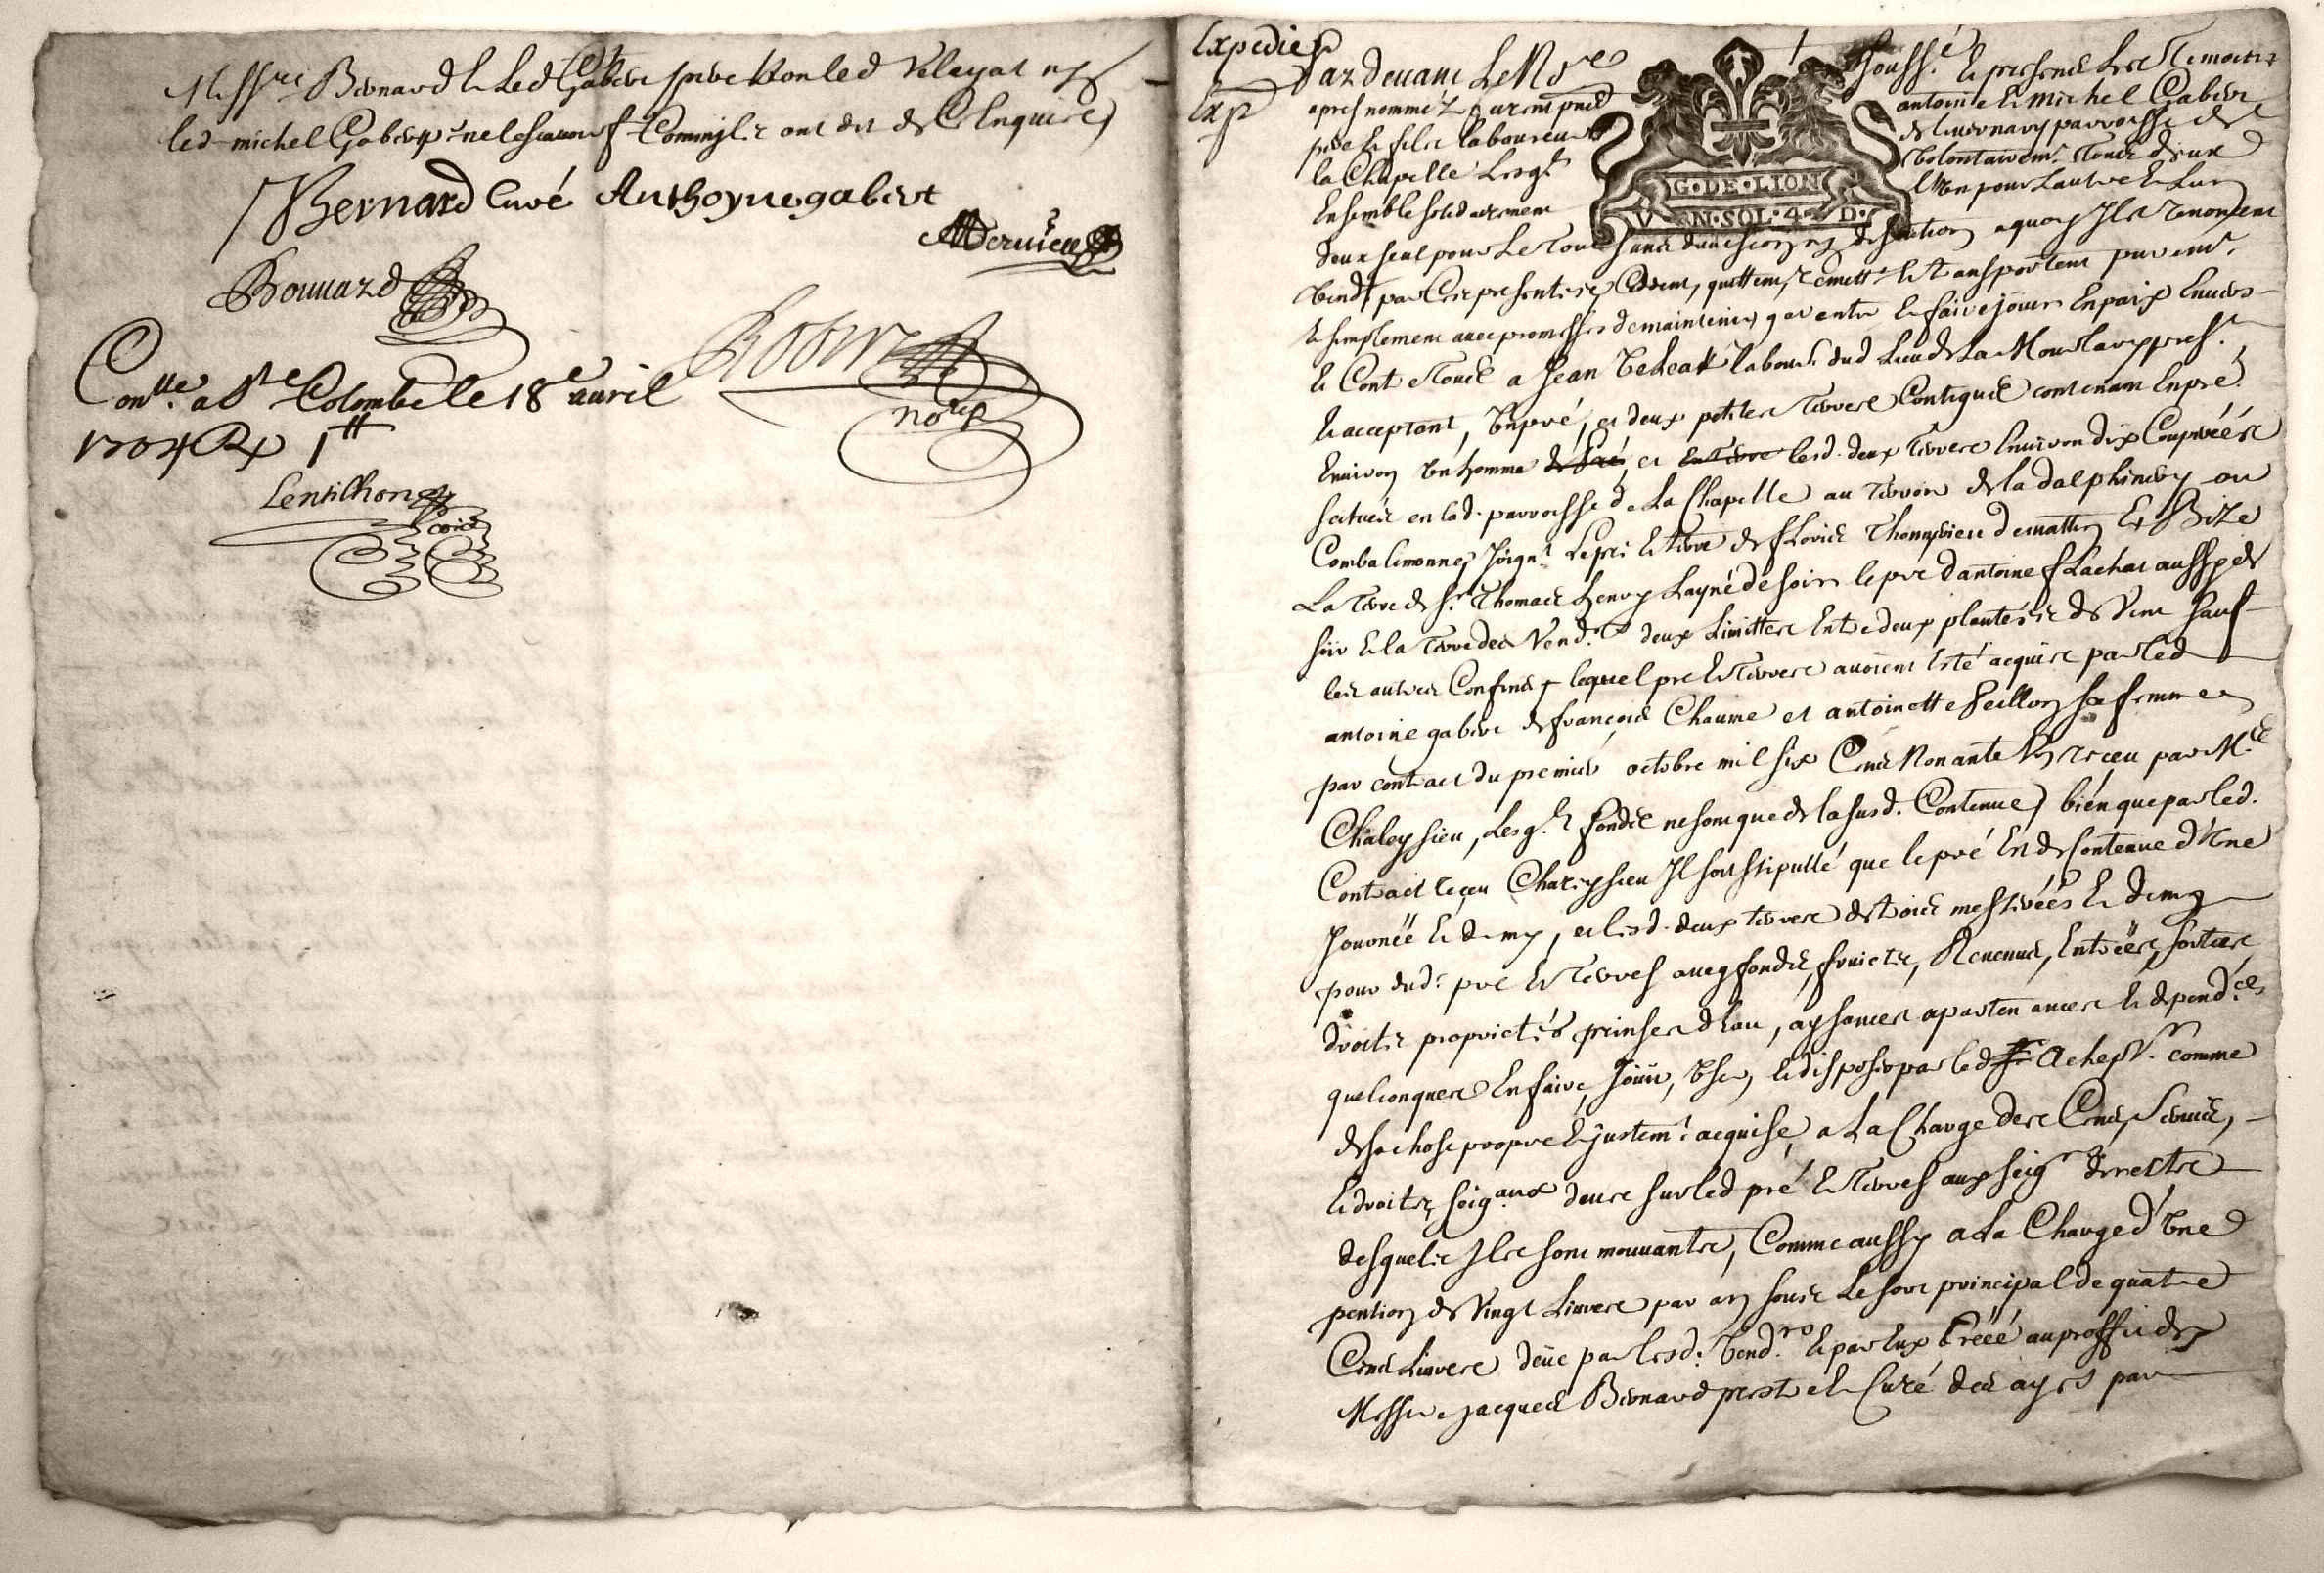 Messire Bernard & led Gabert pere Non led Velayat ny
led michel Gabert p.r ne le scavoir f.re Comme ils ont dit de Ce Enquis
Bernard Curé Anthoyne gabert
Mervieu
Bouuard
Rony
no.re R
Con.lle a S.te Colombe le 18.e avril
1704 Rx 1.tt
Lentilhon
Expedie
Exp
Par devant Le No.re soubss.é & presence des Temoins
apres nommez furent pnts antoine & michel Gabert
pere & fils laboureurs de parroisse de
la Chapelle Lesq.ls volontairem.t Tous deux
Ensemble solidairement L'un pour Lautre & Lun
G·DE·LION
V N·SOL·4 D·
deux seul pour Le Tout sans division ny discution a quoy Ils renoncent
vendt par Ces presentes, Cedent, quittent, remett.t & Transportent purem.t
& simplement avec promesses de maintenir, garentir & faire jouir En paix Envers
& Contre Tous a Jean Veleat labour.r dud Lieu de La pres.t
& acceptant, Un pré, et deux petites Terres Contigues contenant Le pré
Environ Un homme de fré, et En Terre lesd. deux Terres Environ dix Coupéés
scituées en lad. parroisse de La Chapelle au Terroir de la dalphinery ou
Combalimonne, Joign.t Le pré & terre de flоris Thompvieu de matin & Bize
La Terre de S.r Thomas henry Layné de soir le pré dantoine flachat aussy de
soir & la Terre des Vend.rs deux Limittes Entre deux plantées de Vent sauf
les autres Confins, lequel pre & Terres avoient Esté acquis par led
antoine gabert de francois Chaume et antoinette peillon sa femme
par contract du premier octobre mil six Cens Nonante Un receu par M.e
Chaleysieu, Lesq.ls fonds ne sont que de la susd. Contenue, bien que par led.
Contract receu Chaleysieu Il soit stipullé que le pré Est de Contenue d'Une
Journée & demy, et lesd. deux terres de trois mestérées & demy
pour dud. pré & Terres avec fonds, fruicts, Revenus, Entrées, sorties,
droits proprietés prinses d Eau, aysances apartenances & depend.ces
quelconques En faire, Jouir, User, & disposer par led achept.r comme
de sa chose propre & justem.t acquise, a La Charge des Cens, Servis,
& droits seig.aux deus sur led pré & Terres aux seig.rs directs
desquels Ils sont mouvants, Comme aussy a La Charge d'Une
pention de Vingt Livres par an sous Le sort principal de quatre
Cens Livres deüe par lesd. Vend.rs & par Eux Créée au proffit de
Messire Jacques Bernard prestre & Curé des ayes par